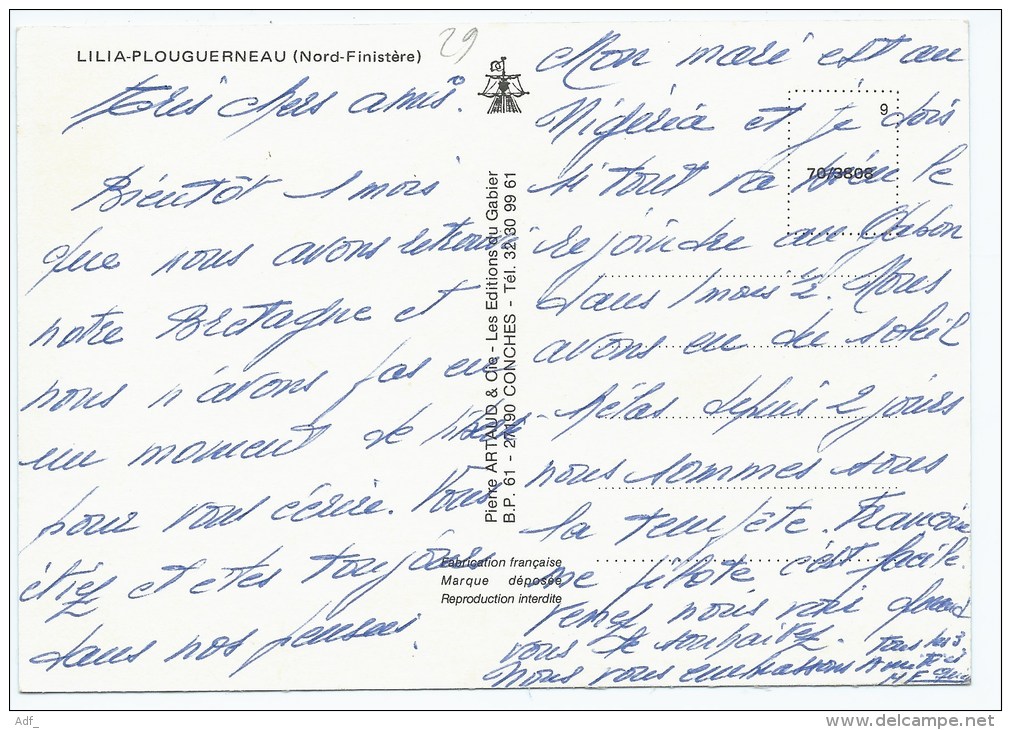 LILIA-PLOUGUERNEAU (Nord-Finistère)
29
Très chers amis.
Bientôt 1 mois
que nous avons retrouvé
notre Bretagne et
nous n'avons pas eu
un moment de libre
pour vous écrire. Vous
étiez et etes toujours
dans nos pensées.
Pierre ARTAUD & Cie - Les Editions du Gabier
B.P. 61 - 27190 CONCHES - Tél. 32 30 99 61
Fabrication française
Marque déposée
Reproduction interdite
9
70/3808
Mon mari est au
Nigéria et je dois
si tout va bien le
rejoindre au Gabon
dans 1 mois 1/2. Nous
avons eu du soleil
hélas depuis 2 jours
nous sommes sous
la tempête. Francoise
me pilote c'est facile.
Venez nous voir quand
vous le souhaitez.
Nous vous embrassons
Tous les 3
Amitiés
M F
Adf_
http://www.delcampe.net